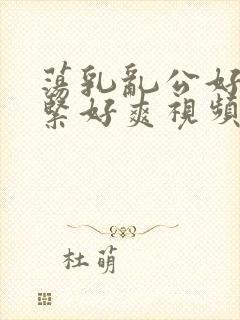 蕩乳亂公好
緊好爽視頻
杜萌